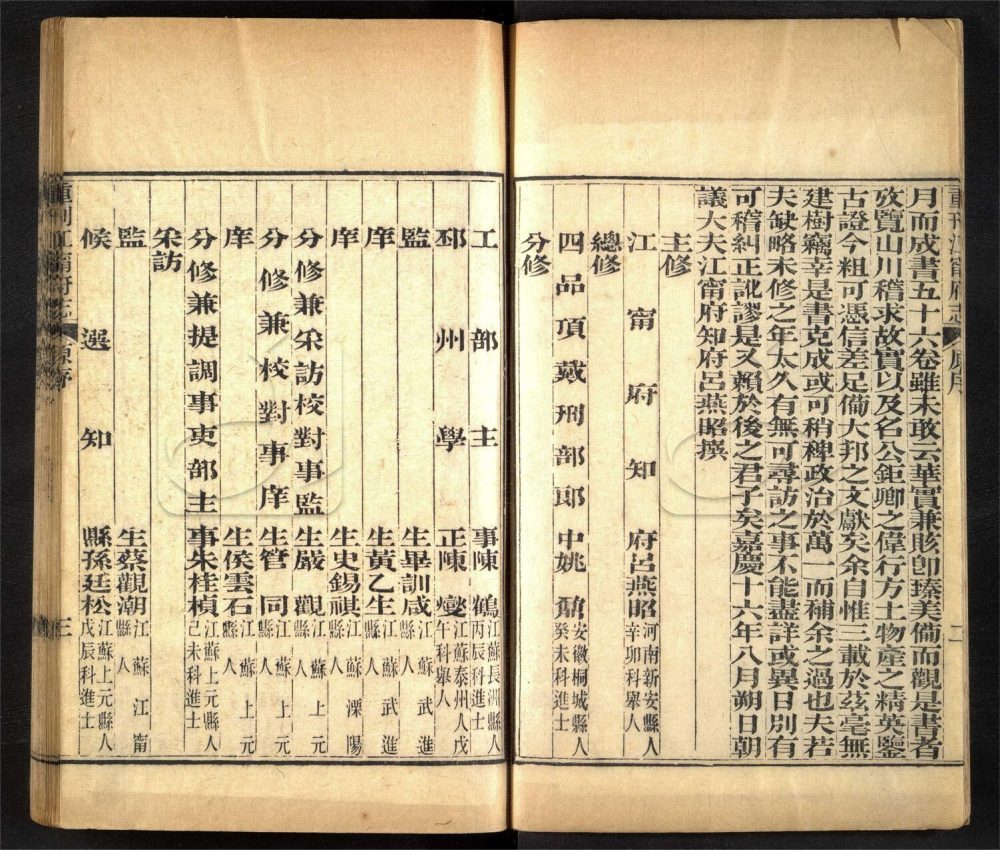 重刊江甯府志 原序 二
月而成書五十六卷雖未敢云華實兼賅卽臻美備而觀是書者
攷覽山川稽求故實以及名公鉅卿之偉行方土物產之精英鑒
古證今粗可憑信差足備大邦之文獻矣余自惟三載於茲毫無
建樹竊幸是書克成或可稍稗政治於萬一而補余之過也夫若
夫缺略未修之年太久有無可尋訪之事不能盡詳或異日別有
可稽糾正訛謬是又賴於後之君子矣嘉慶十六年八月朔日朝
議大夫江甯府知府呂燕昭撰
主修
江甯府知府呂燕昭河南新安縣人辛卯科舉人
總修
四品頂戴刑部郎中姚鼐安徽桐城縣人癸未科進士
分修
工部主事陳鶴江蘇長洲縣人丙辰科進士
邳州學正陳燮江蘇泰州人戊午科舉人
監生畢訓咸江蘇武進縣人
庠生黃乙生江蘇武進縣人
庠生史錫祺江蘇溧陽縣人
分修兼采訪校對事監生嚴觀江蘇上元縣人
分修兼校對事庠生管同江蘇上元縣人
庠生侯雲石江蘇上元縣人
分修兼提調事吏部主事朱桂楨江蘇上元縣人己未科進士
采訪
監生蔡觀潮江蘇江甯縣人
候選知縣孫廷松江蘇上元縣人戊辰科進士
重刊江甯府志 原序 三